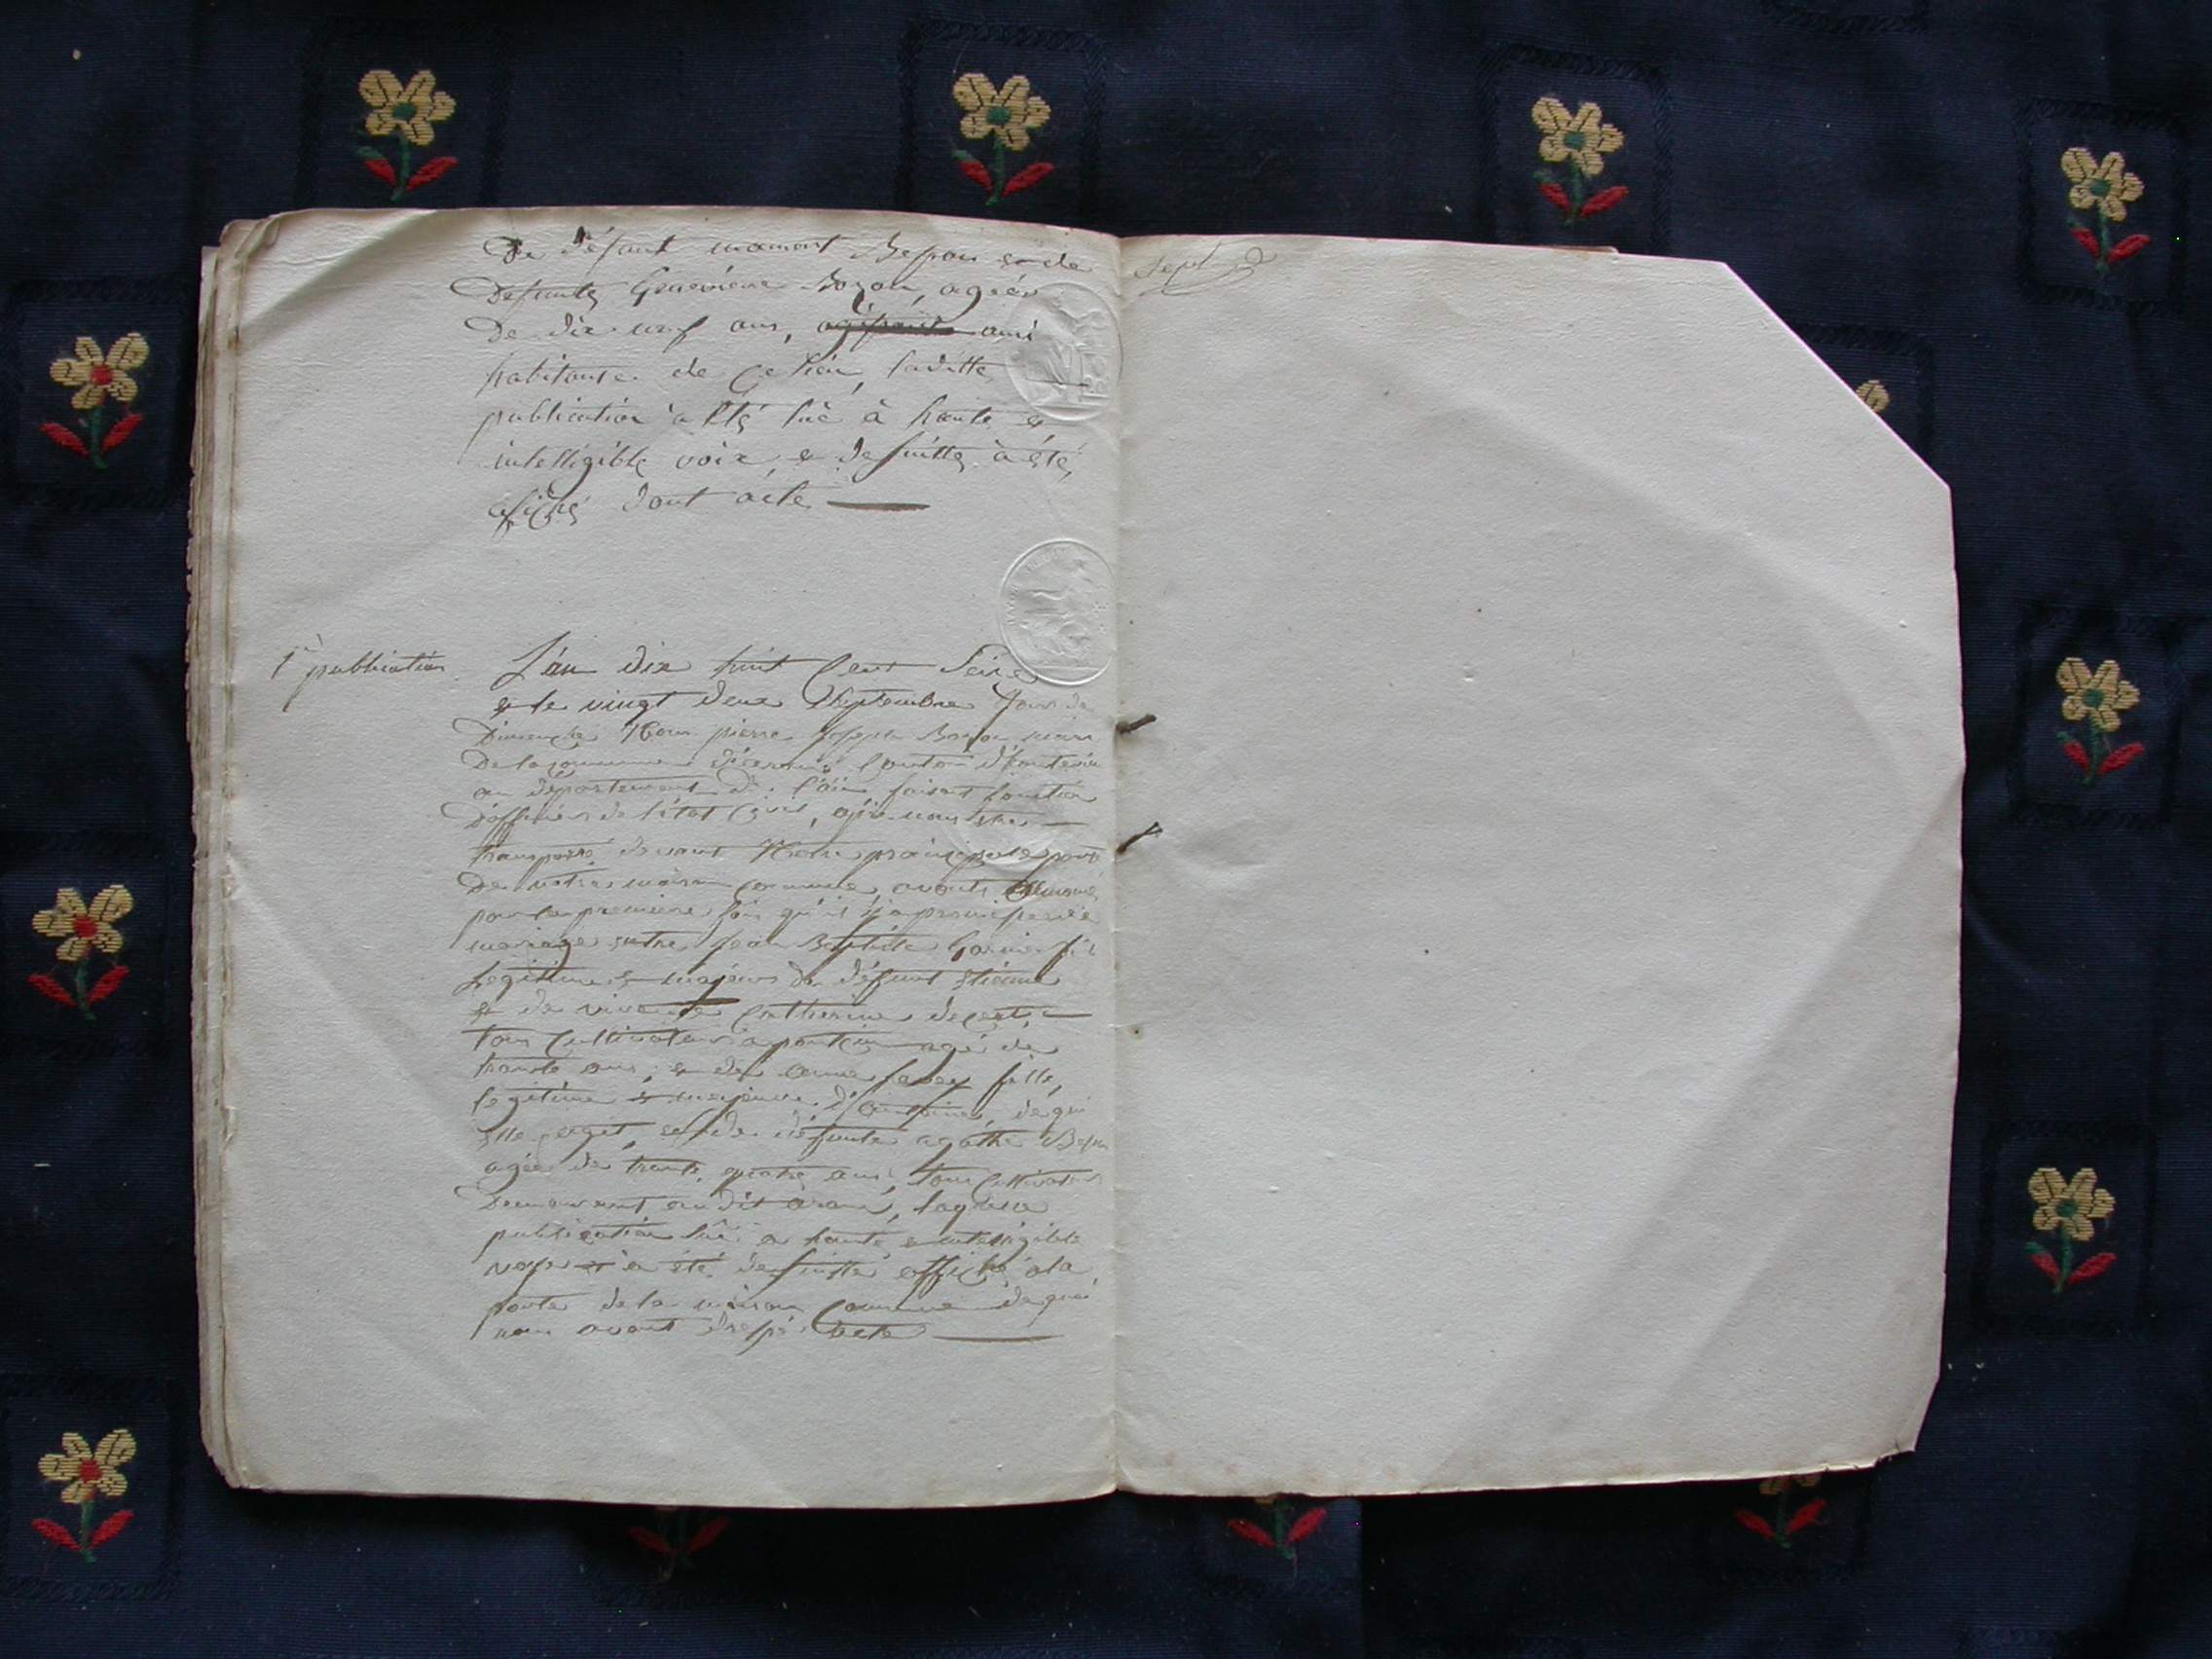 De défunt mamert Besson et de
Defunte Genevieve Bozon, agée
De dix neuf ans, aussi
habitante de Ce lieu, laditte
publication à eté luë à haute et
intelligible voix, et de suitte à été,
afiché dont acte
1re publication
L'an dix huit Cent Seize
et le vingt deux Septembre Jour de
Dimanche Nous pierre Joseph Bozon maire
De la commune Canton d'hauteville
au département de l'ain faisant fonction
D'officier de l'état Civil, nous être
transporté devant Notre principale porte
De notre maison Commune avons annoncé
pour la premiere fois qu'il y a promesse de
mariage entre Jean Baptiste Garnier fils
Legitime et majeur de défunt étienne
et de vivante Catherine
tous Cultivateurs agé de
trante ans, et de anne favey fille,
legitime et majeure d'antoine, de qui
elle et de défunte agathe Besson
agée de trante quatre ans, tous Cultivateurs
Demeurant audit aranc, laquelle
publication luë a haute et intelligible
voix à été de suitte affiché a la
porte de la maison Commune de quoi
nous avons dressé acte
Sept